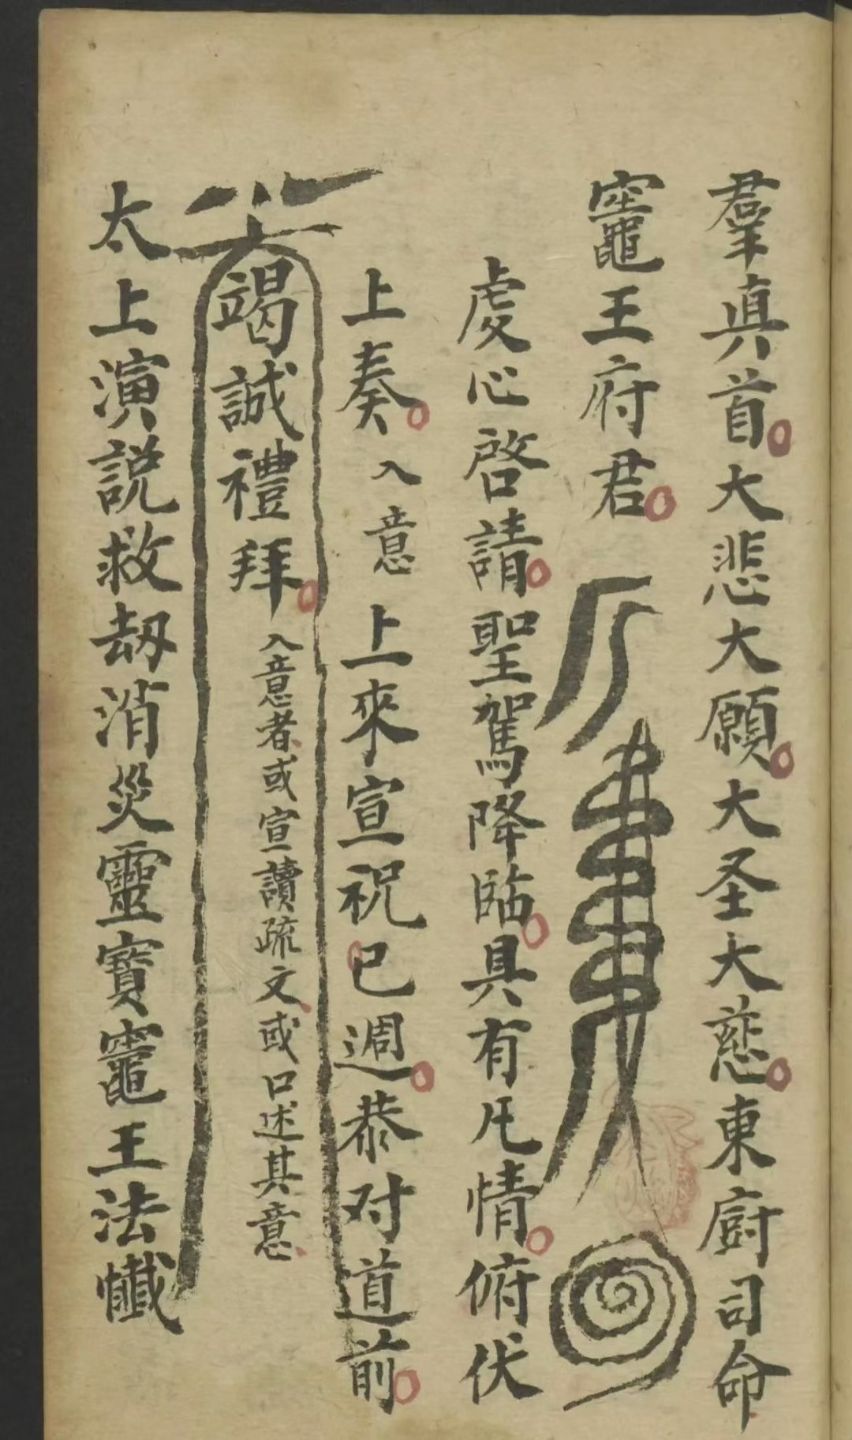 羣真首大悲大願大圣大慈東厨司命
竈王府君
虔心啓請聖駕降臨具有凡情俯伏
上奏入意上來宣祝已週恭对道前
竭誠禮拜入意者或宣讀疏文或口述其意
太上演説救劫消災靈寳竈王法懺